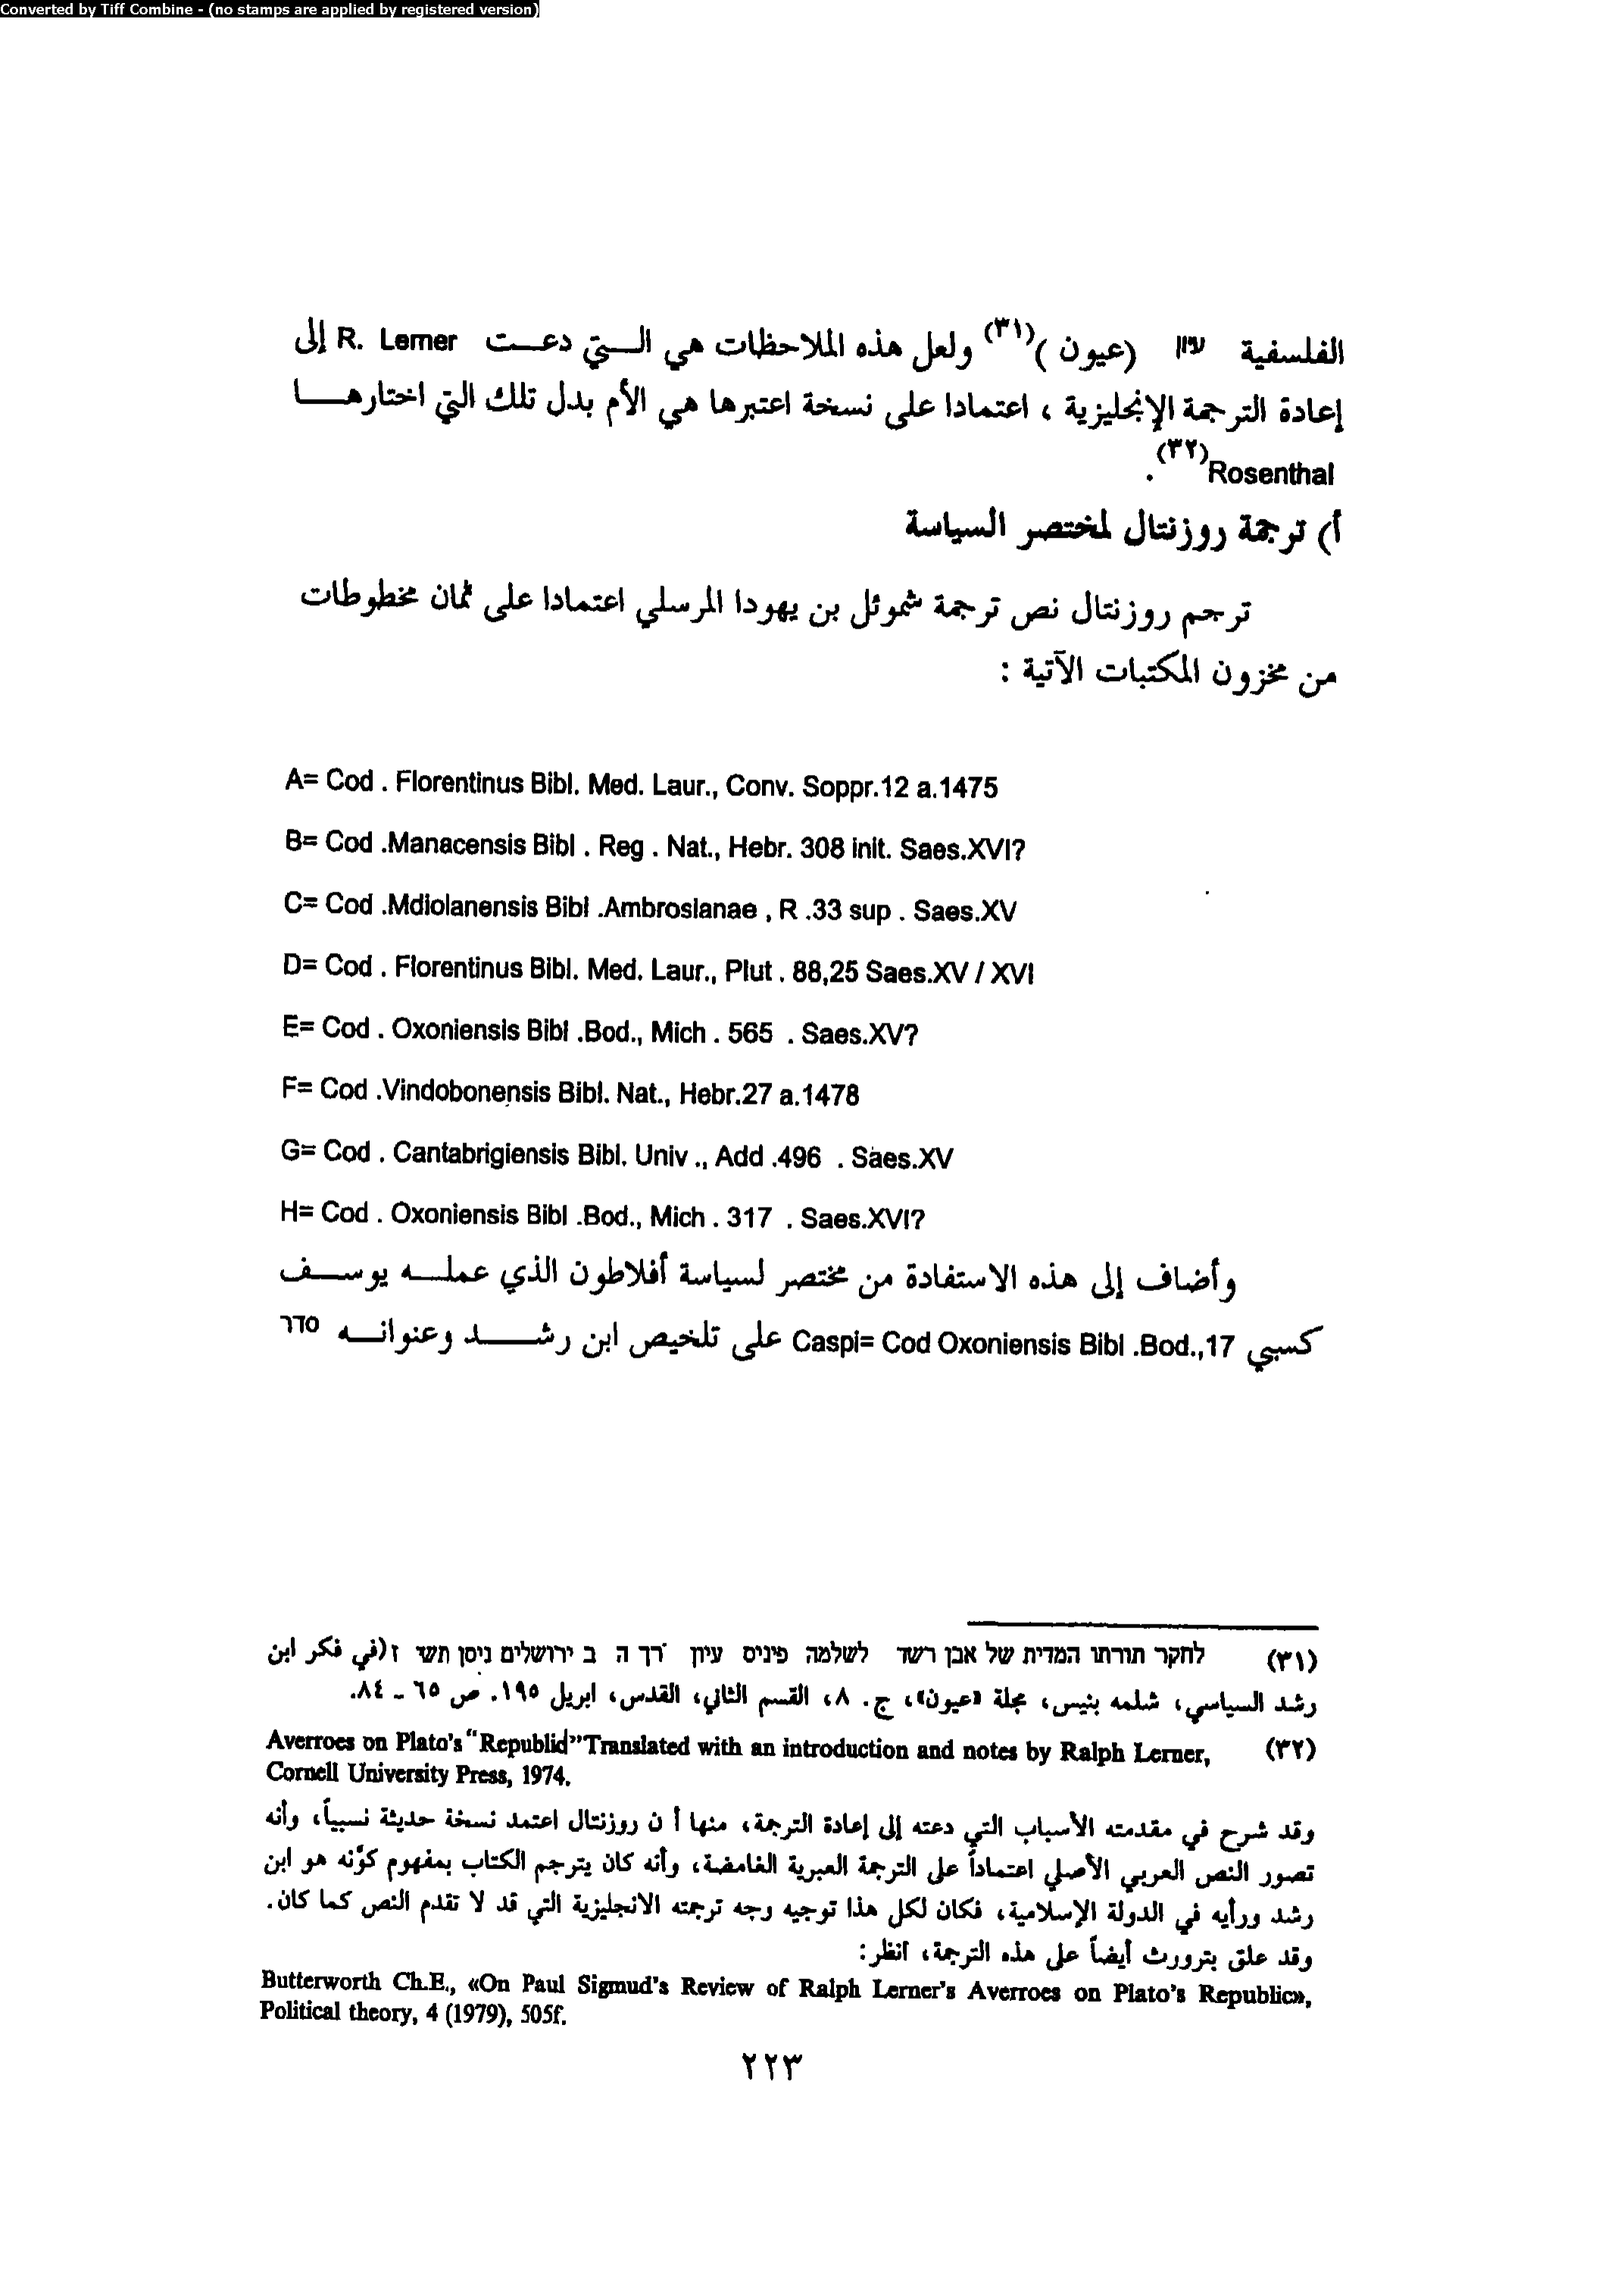 Converted by Tiff Combine - (no stamps are applied by registered version)
الفلسفية עיון (عيون )(٣١) ولعل هذه الملاحظات هي الـــتي دعـــت R. Lerner إلى
إعادة الترجمة الإنجليزية ، اعتمادا على نسخة اعتبرها هي الأم بدل تلك التي اختارهـــا
Rosenthal(٣٢).
أ) ترجمة روزنتال لمختصر السياسة
ترجم روزنتال نص ترجمة شموئل بن يهودا المرسلي اعتمادا على ثمان مخطوطات
من مخزون المكتبات الآتية :
A= Cod . Florentinus Bibl. Med. Laur., Conv. Soppr.12 a.1475
B= Cod .Manacensis Bibl . Reg . Nat., Hebr. 308 init. Saes.XVI?
C= Cod .Mdiolanensis Bibl .Ambrosianae , R .33 sup . Saes.XV
D= Cod . Florentinus Bibl. Med. Laur., Plut . 88,25 Saes.XV / XVI
E= Cod . Oxoniensis Bibl .Bod., Mich . 565 . Saes.XV?
F= Cod .Vindobonensis Bibl. Nat., Hebr.27 a.1478
G= Cod . Cantabrigiensis Bibl. Univ ., Add .496 . Saes.XV
H= Cod . Oxoniensis Bibl .Bod., Mich . 317 . Saes.XVI?
وأضاف إلى هذه الاستفادة من مختصر لسياسة أفلاطون الذي عملـــه يوســـف
كسبي Caspi= Cod Oxoniensis Bibl .Bod.,17 على تلخيص ابن رشـــد وعنوانـــه
(٣١) לחקר תורתו המדית של אבן רשד לשלמה פיניס עיון רך ה ב ירושלים ניסן תשי ז(في فكر ابن
رشد السياسي، شلمه بنيس، مجلة «عيون»، ج. ٨، القسم الثاني، القدس، ابريل ١٩٥. ص ٦٥ ـ ٨٤.
(٣٢) Averroes on Plato's "Republid" Translated with an introduction and notes by Ralph Lerner,
Cornell University Press, 1974.
وقد شرح في مقدمته الأسباب التي دعته إلى إعادة الترجمة، منها أ ن روزنتال اعتمد نسخة حديثة نسبياً، وأنه
تصور النص العربي الأصلي اعتماداً على الترجمة العبرية الغامضة، وأنه كان يترجم الكتاب بمفهوم كوّنه هو ابن
رشد ورأيه في الدولة الإسلامية، فكان لكل هذا توجيه وجه ترجمته الانجليزية التي قد لا تقدم النص كما كان.
وقد علق بترورث أيضاً على هذه الترجمة، انظر:
Butterworth Ch.E., «On Paul Sigmud's Review of Ralph Lerner's Averroes on Plato's Republic»,
Political theory, 4 (1979), 505f.
٢٢٣